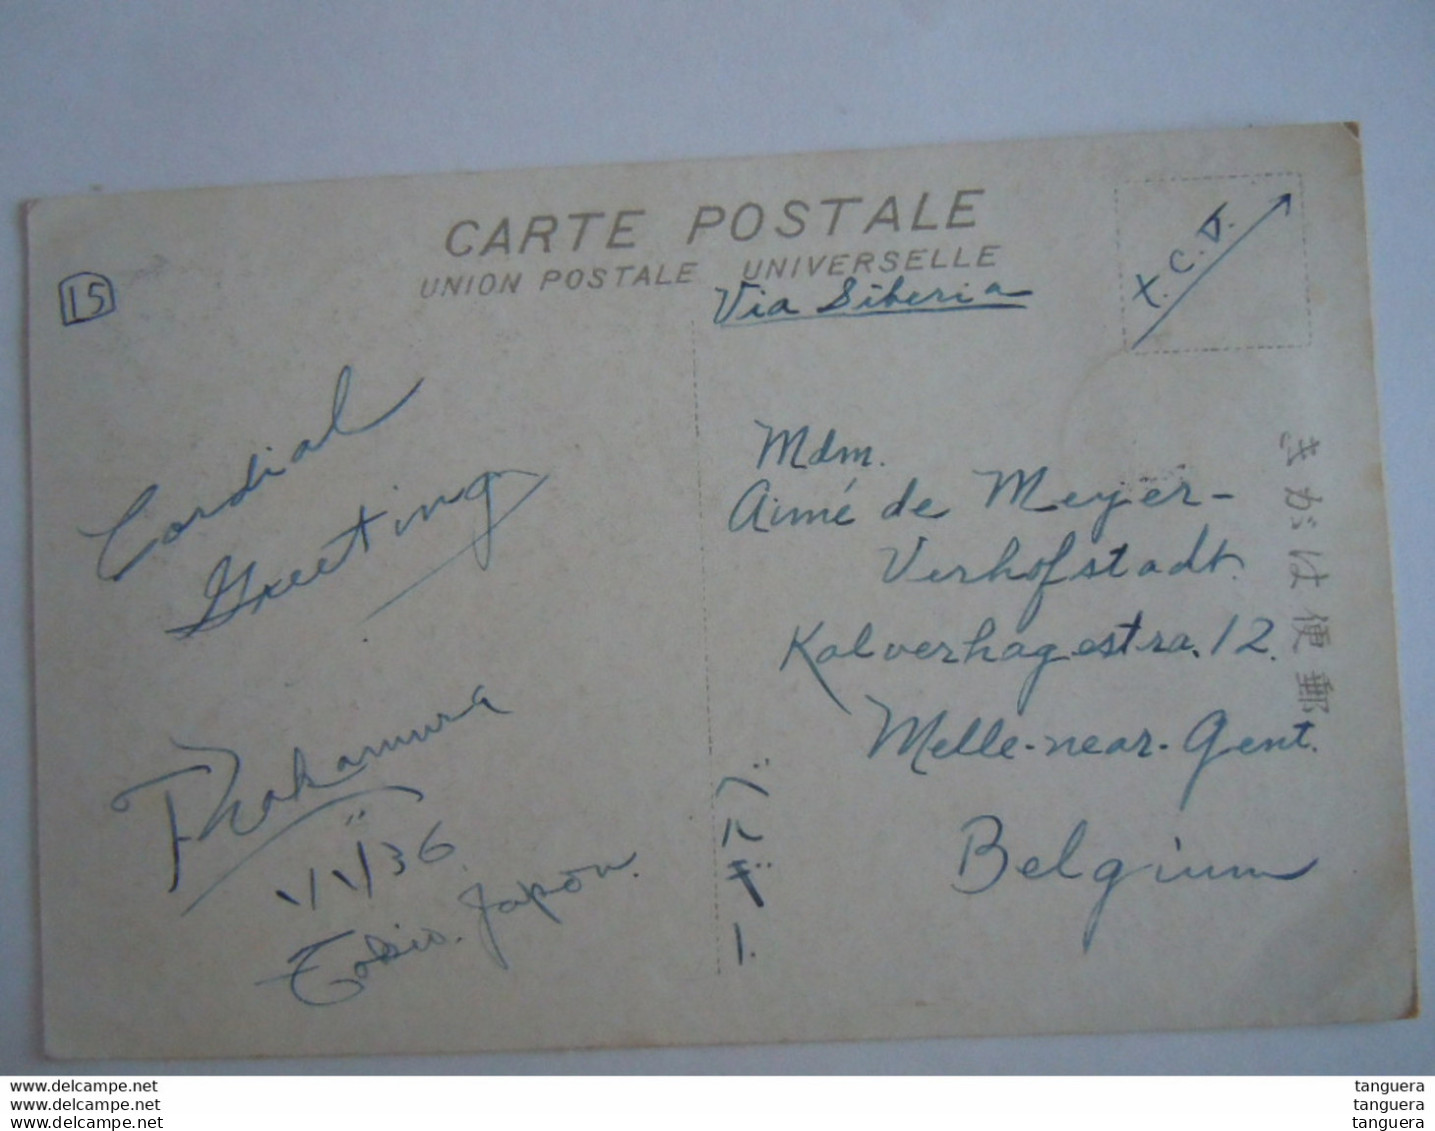 CARTE POSTALE
UNION POSTALE UNIVERSELLE
Via Siberia
T.C.V.
15
Cordial
Greeting
Nakamura
1/V/36
Tokio. Japón.
Mdm.
Aimé de Meyer-
Verhofstadt.
Kalverhagestra. 12.
Melle-near-Gent.
Belgium
ベルギー.
郵便はがき
www.delcampe.net
www.delcampe.net
www.delcampe.net
tanguera
tanguera
tanguera